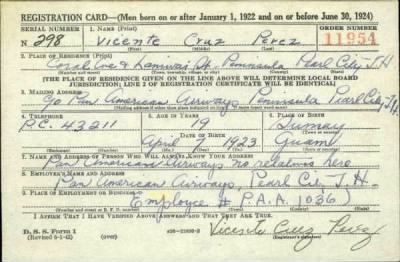 REGISTRATION CARD—(Men born on or after January 1, 1922 and on or before June 30, 1924)
SERIAL NUMBER 1. NAME (Print) ORDER NUMBER
N 298 Vicente Cruz Perez 11954
(First) (Middle) (Last)
2. PLACE OF RESIDENCE (Print)
Coral Ave & Lanwai St. Peninsula Pearl City T.H.
(Number and street) (Town, township, village, or city) (County) (State)
[THE PLACE OF RESIDENCE GIVEN ON THE LINE ABOVE WILL DETERMINE LOCAL BOARD
JURISDICTION; LINE 2 OF REGISTRATION CERTIFICATE WILL BE IDENTICAL]
3. MAILING ADDRESS
c/o Pan American Airways Peninsula Pearl City T.H.
4. TELEPHONE 5. AGE IN YEARS 6. PLACE OF BIRTH
P.C. 43211 19 Sumay
DATE OF BIRTH
April 7 1923 Guam
7. NAME AND ADDRESS OF PERSON WHO WILL ALWAYS KNOW YOUR ADDRESS
Pan American Airways no relatives here
8. EMPLOYER'S NAME AND ADDRESS
Pan American Airways, Pearl City T.H.
9. PLACE OF EMPLOYMENT OR BUSINESS
Employee # P.A.A. 1036)
I AFFIRM THAT I HAVE VERIFIED ABOVE ANSWERS AND THAT THEY ARE TRUE.
D. S. S. Form 1
(Revised 6-1-42) (over) Vicente Cruz Perez
(Registrant's signature)